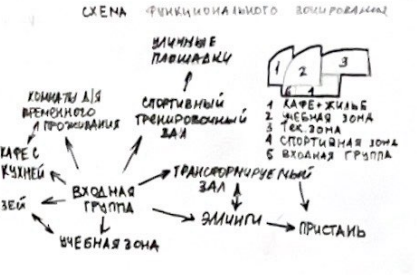 СХЕМА ФУНКЦИОНАЛЬНОГО ЗОНИРОВАНИЯ
УЛИЧНЫЕ
ПЛОЩАДКИ
1 2 3
5 4
КОМНАТЫ Д/Я
ВРЕМЕННОГО
ПРОЖИВАНИЯ
СПОРТИВНЫЙ
ТРЕНИРОВОЧНЫЙ
ЗАЛ
1 КАФЕ+ЖИЛЬЕ
2 УЧЕБНАЯ ЗОНА
3 ТЕХ.ЗОНА
4 СПОРТИВНАЯ ЗОНА
5 ВХОДНАЯ ГРУППА
КАФЕ С
КУХНЕЙ
ТРАНСФОРМИРУЕМЫЙ
ЗАЛ
ВХОДНАЯ
ГРУППА
ЗЕЙ
ЭЛЛИНГИ
ПРИСТАНЬ
УЧЕБНАЯ ЗОНА